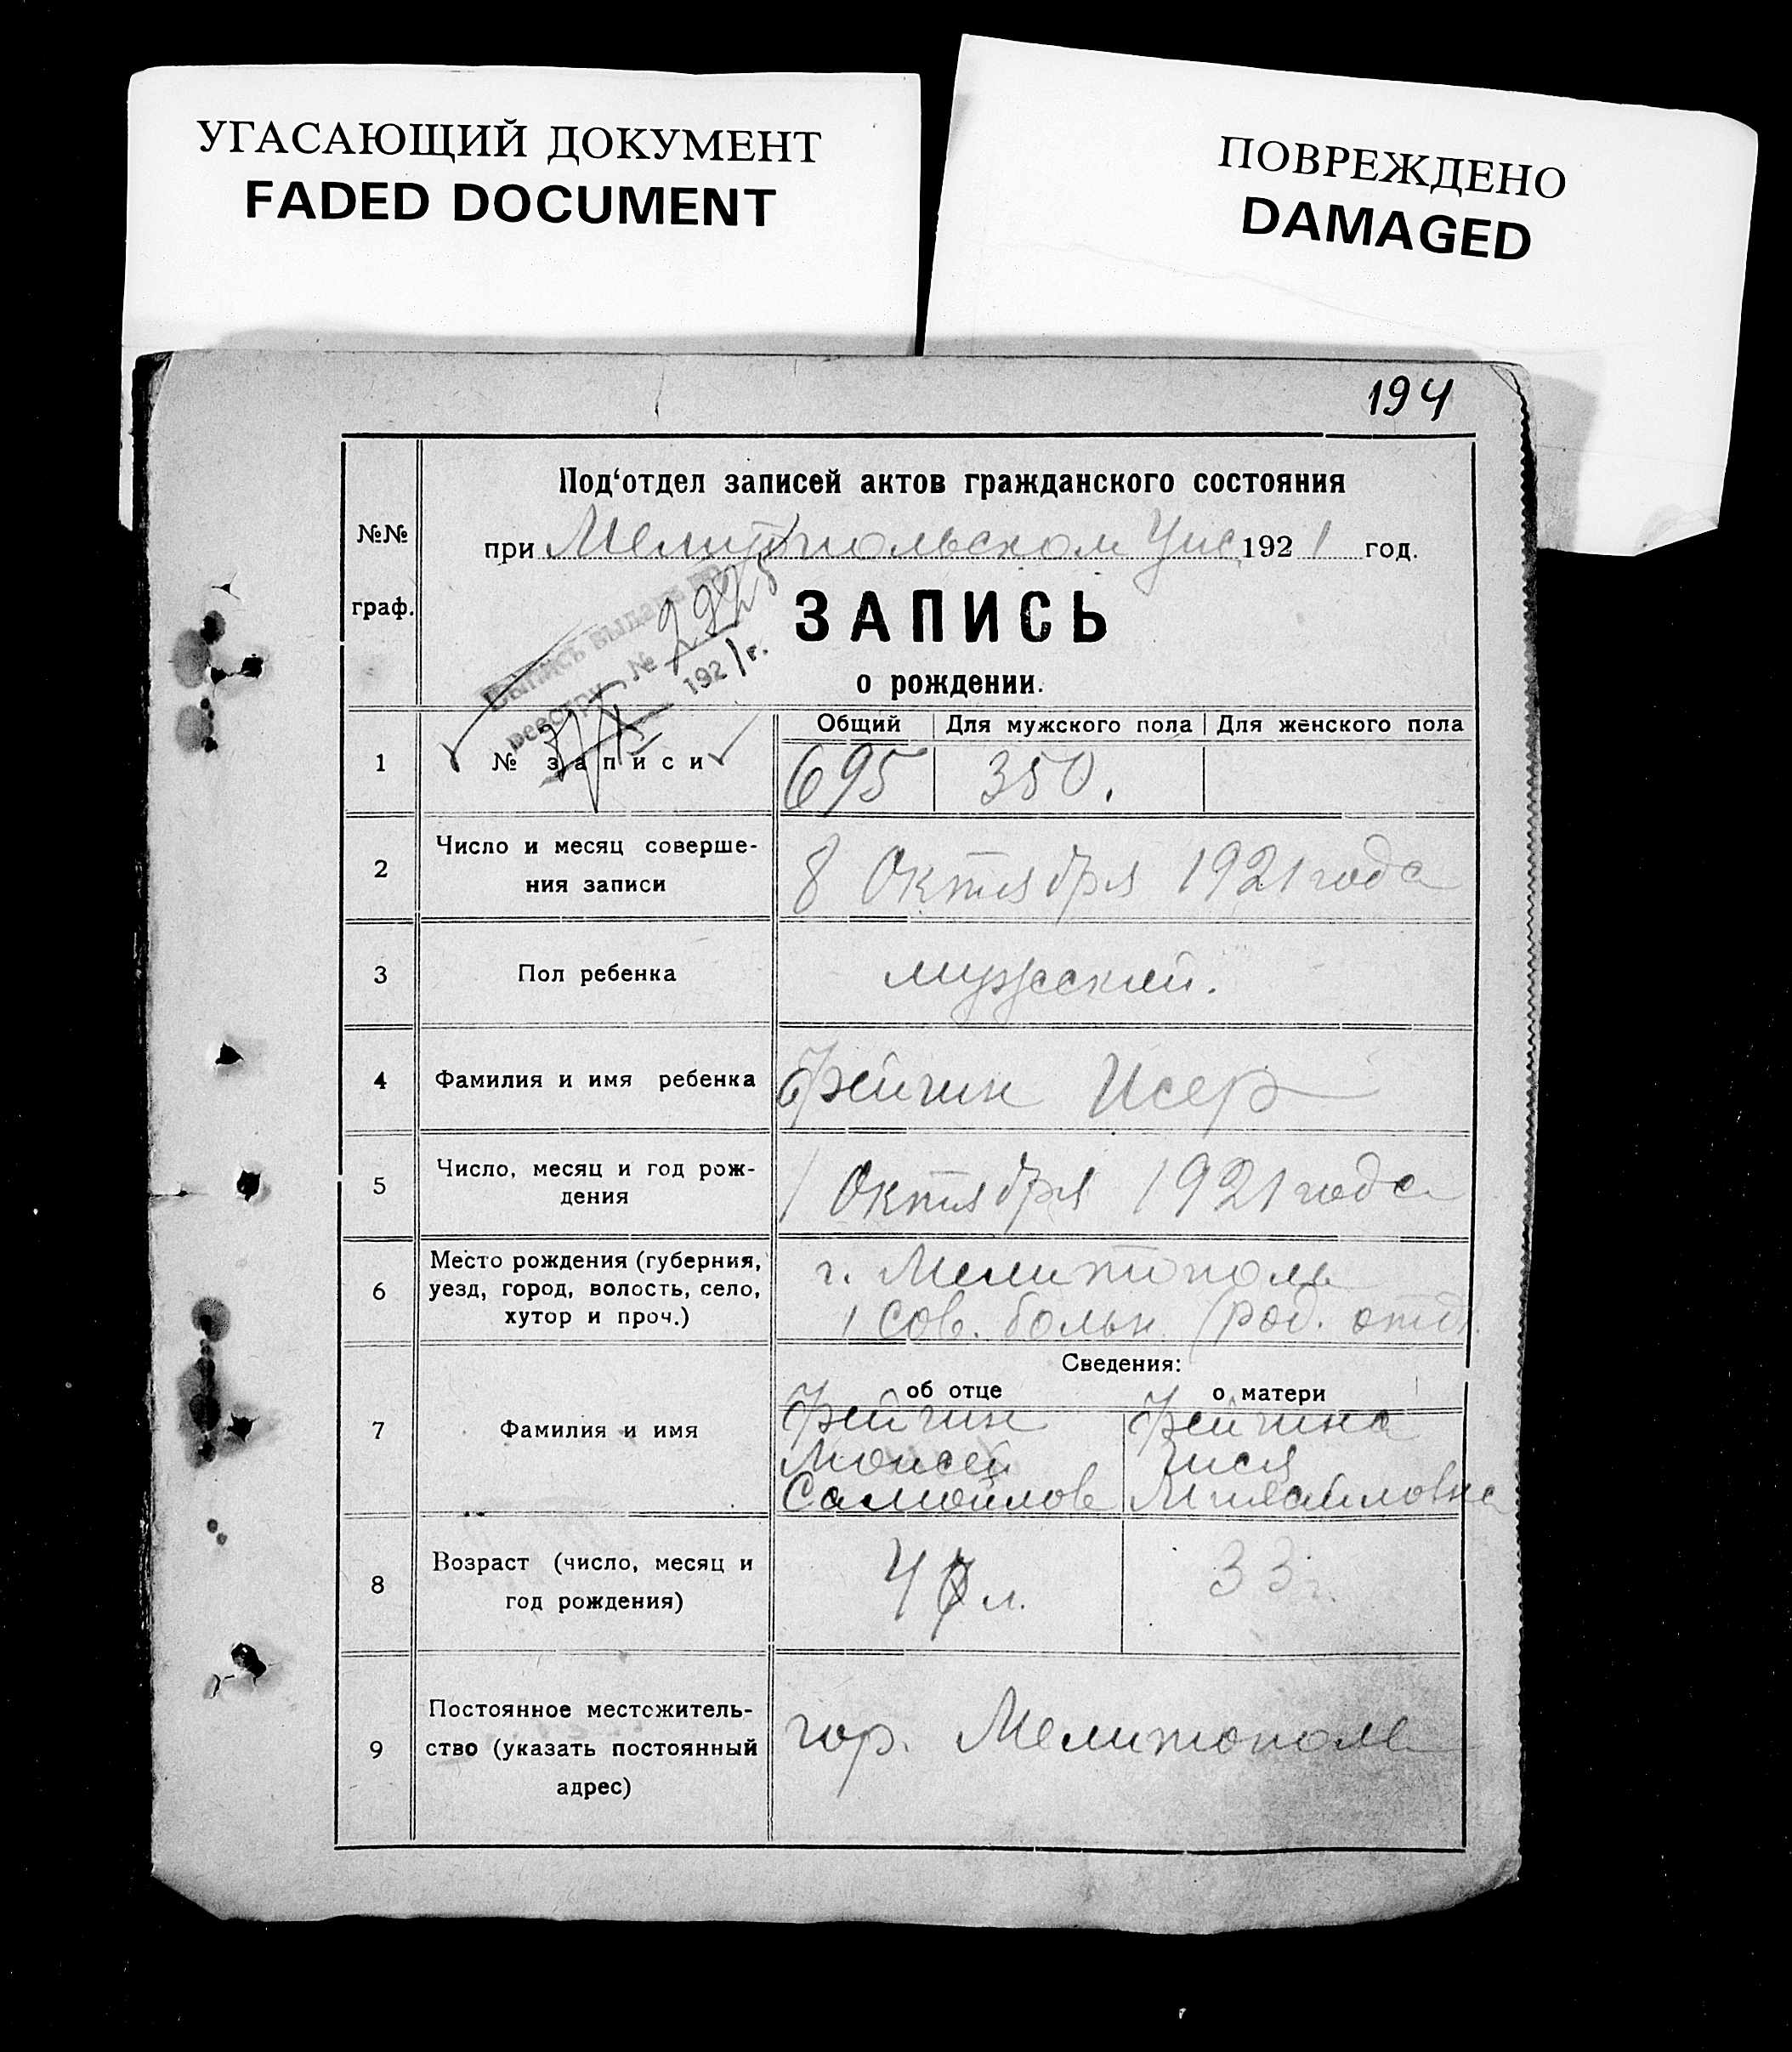 УГАСАЮЩИЙ ДОКУМЕНТ
FADED DOCUMENT
ПОВРЕЖДЕНО
DAMAGED
194
№№
граф.
Под‘отдел записей актов гражданского состояния
при Мелитопольском 1921 год.
Выпись выдана по
реестру №
1921 г.
ЗАПИСЬ
о рождении.
1
№ записи
Общий
Для мужского пола
Для женского пола
695
350.
2
Число и месяц соверше-
ния записи
8 Октября 1921 года
3
Пол ребенка
мужской.
4
Фамилия и имя ребенка
Фейгин Исер
5
Число, месяц и год рож-
дения
1 Октября 1921 года
6
Место рождения (губерния,
уезд, город, волость, село,
хутор и проч.)
г. Мелитополь
1 Сов. больн. (род. отд.
Сведения:
об отце
о матери
7
Фамилия и имя
Фейгин
Моисей
Самойлов
Фейгина
Михайловна
8
Возраст (число, месяц и
год рождения)
л.
33 г.
9
Постоянное местожитель-
ство (указать постоянный
адрес)
гор. Мелитополь